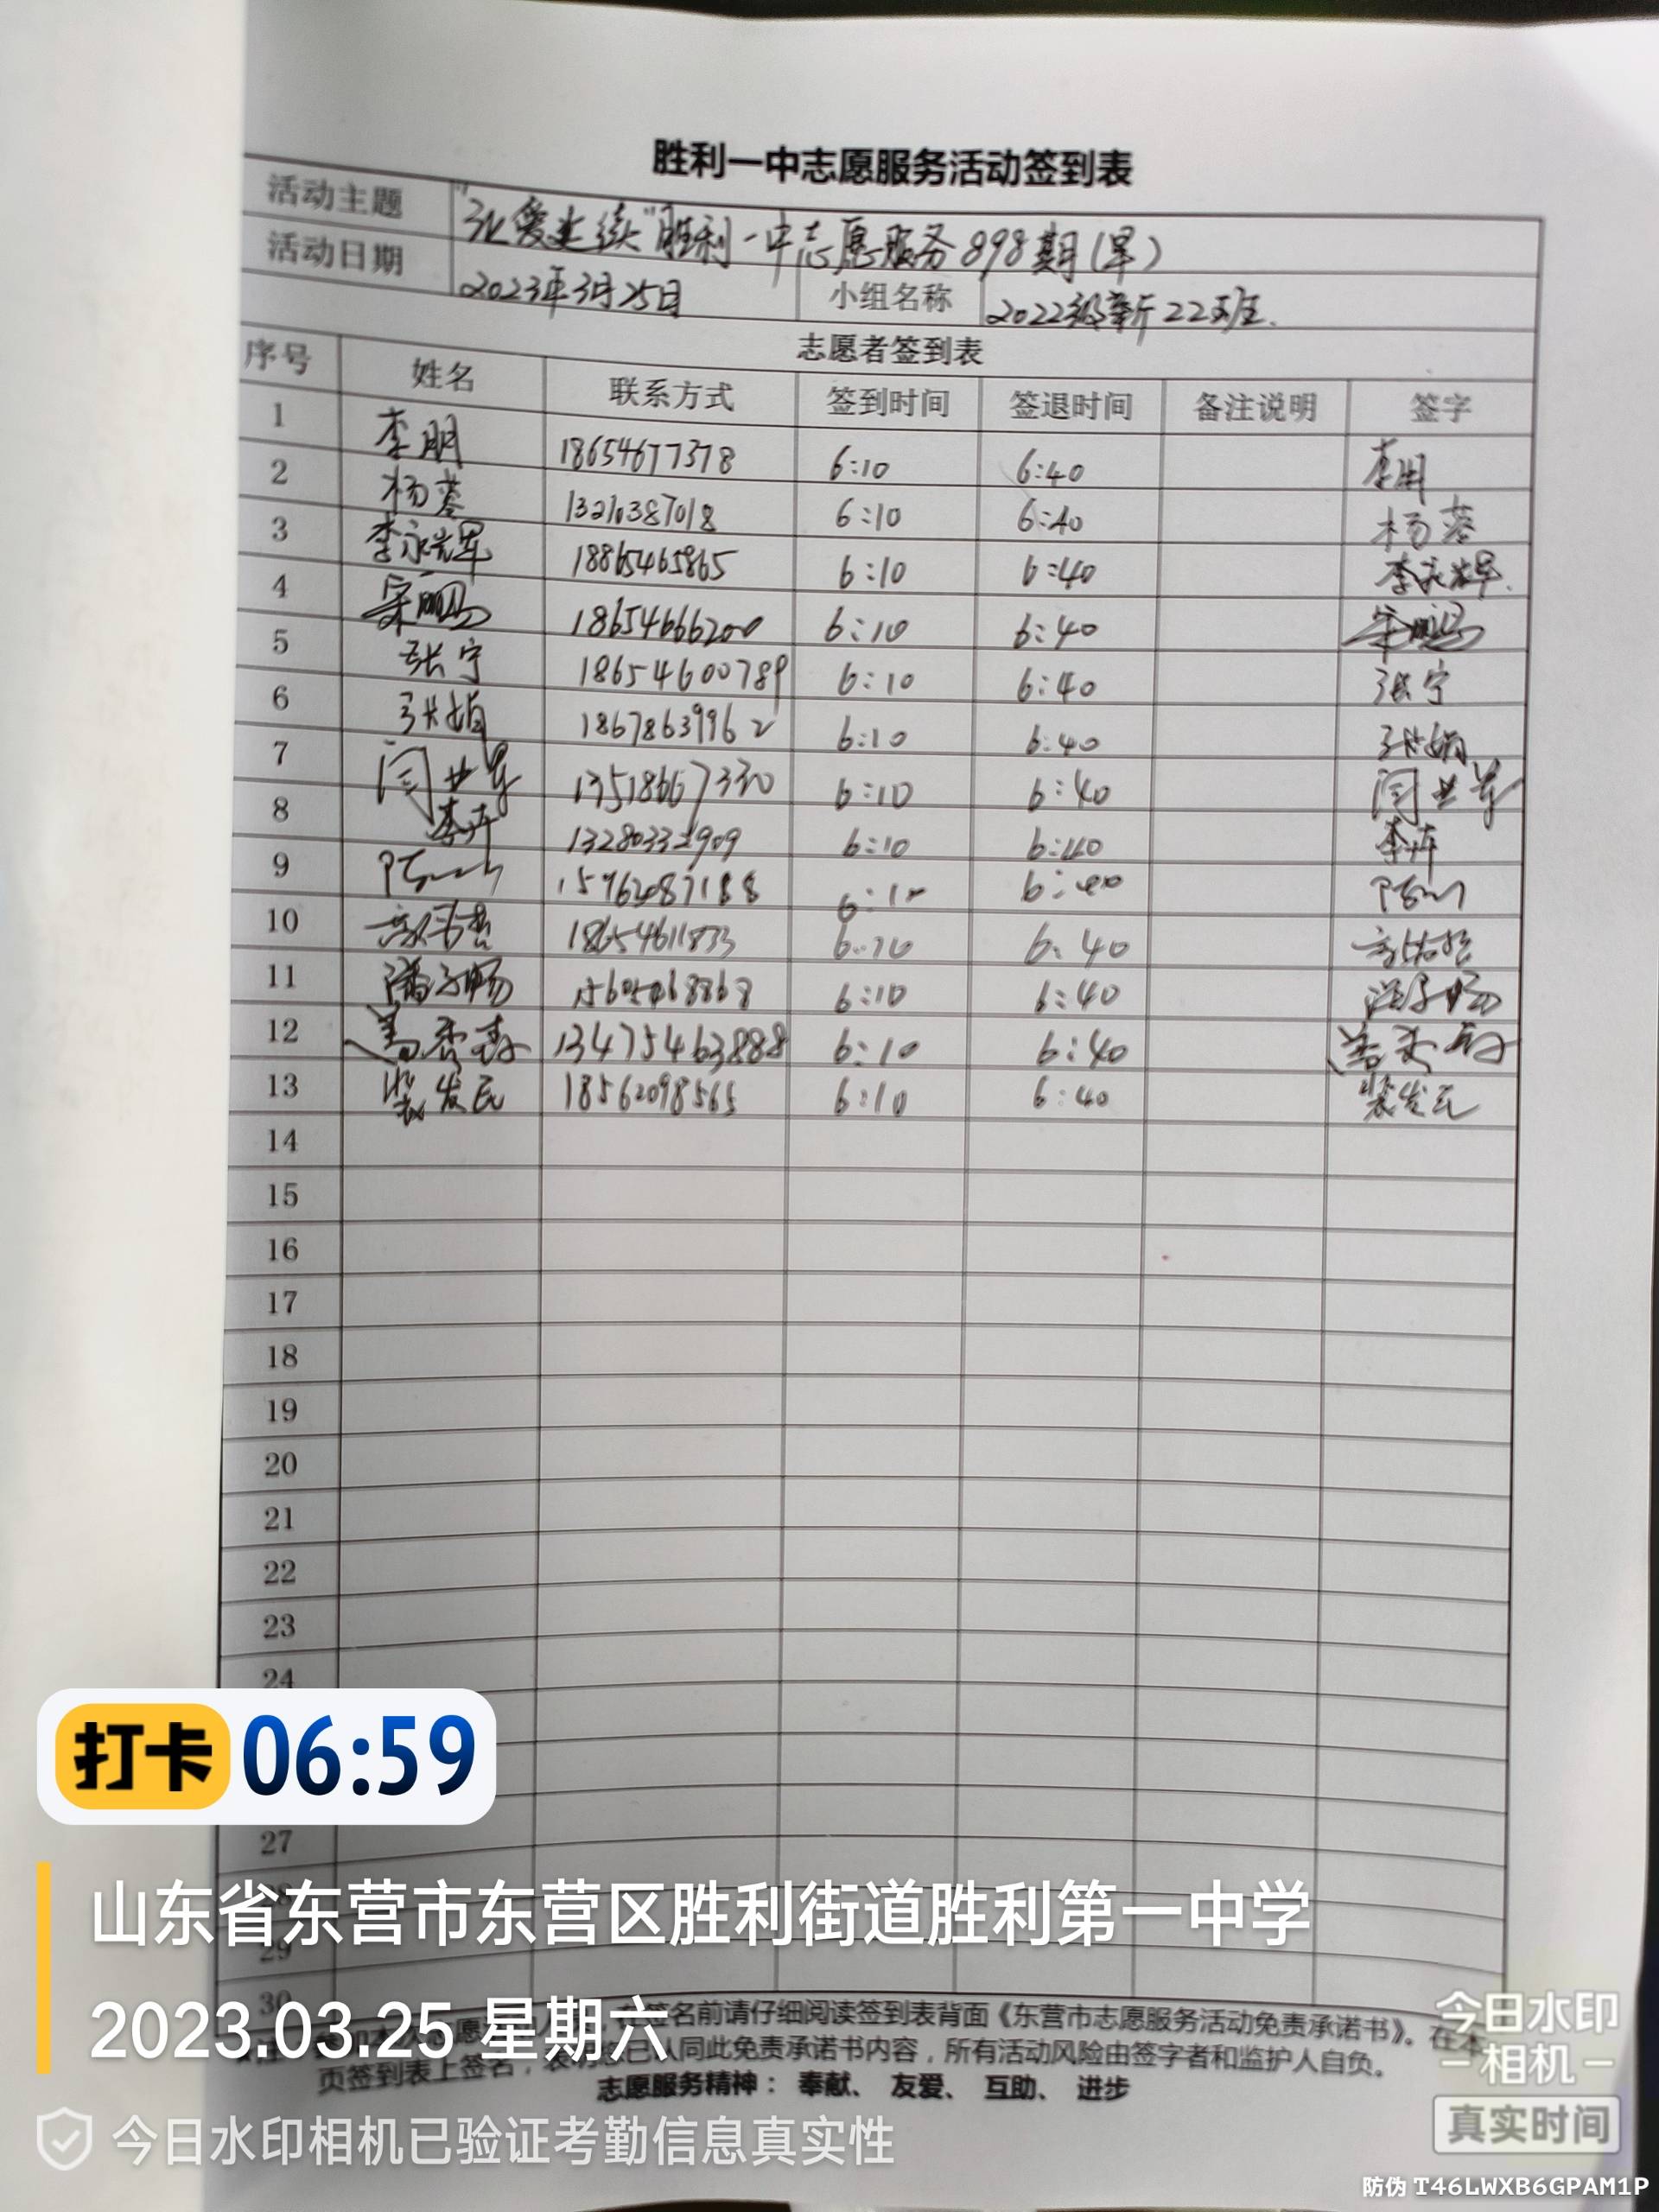 胜利一中志愿服务活动签到表
活动主题 "弘爱延续"胜利一中志愿服务898期(早)
活动日期 2023年3月25日 小组名称 2022级新22班.
志愿者签到表
序号 姓名 联系方式 签到时间 签退时间 备注说明 签字
1 李朋 18654677378 6:10 6:40 李朋
2 杨蓉 13210387018 6:10 6:40 杨蓉
3 李永辉 18865465865 6:10 6:40 李永辉.
4 宋丽娟 18654666200 6:10 6:40
5 张宁 18654600789 6:10 6:40 张宁
6 张娟 18678639962 6:10 6:40 张娟
7 闫业军 13518667330 6:10 6:40 闫业军
8 李卉 13280332909 6:10 6:40 李卉
9 15962087188 6:10 6:40
10 18654611833 6:10 6:40
11 潘子畅 15605468868 6:10 6:40 潘子畅
12 13475463888 6:10 6:40
13 裴发民 18562098565 6:10 6:40 裴发民
14
15
16
17
18
19
20
21
22
23
24
27
29
30
签名前请仔细阅读签到表背面《东营市志愿服务活动免责承诺书》。在本
页签到表上签名，表 已认同此免责承诺书内容，所有活动风险由签字者和监护人自负。
志愿服务精神： 奉献、 友爱、 互助、 进步
打卡 06:59
山东省东营市东营区胜利街道胜利第一中学
2023.03.25 星期六
今日水印相机已验证考勤信息真实性
今日水印
相机
真实时间
防伪 T46LWXB6GPAM1P